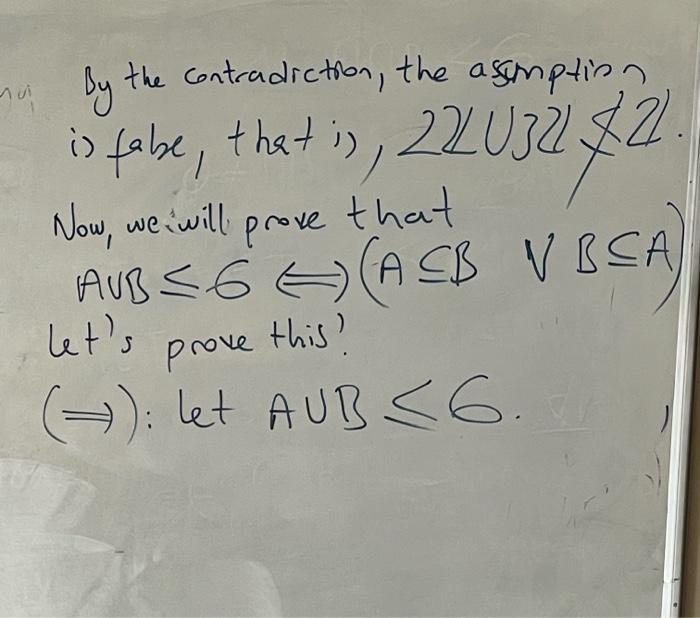 By the contradiction, the assmption
is false, that is, 2ℤ∪3ℤ≰ℤ.
Now, we will prove that
A∪B≤G ⟺ (A⊆B ∨ B⊆A)
Let's prove this!
(⟹): let A∪B≤G.